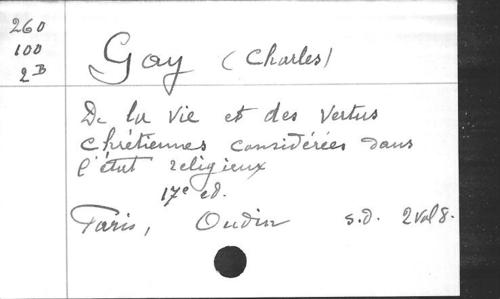 260
100
2 B
Gay (Charles)
De la vie et des vertus
chrétiennes considérées dans
l'état religieux
17e ed.
Paris, Oudin s.d. 2 vol 8.